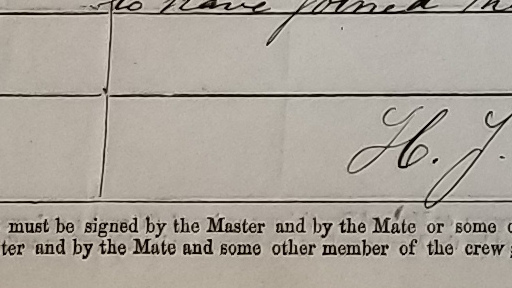 to have joined the
H. J.
must be signed by the Master and by the Mate or some
ter and by the Mate and some other member of the crew